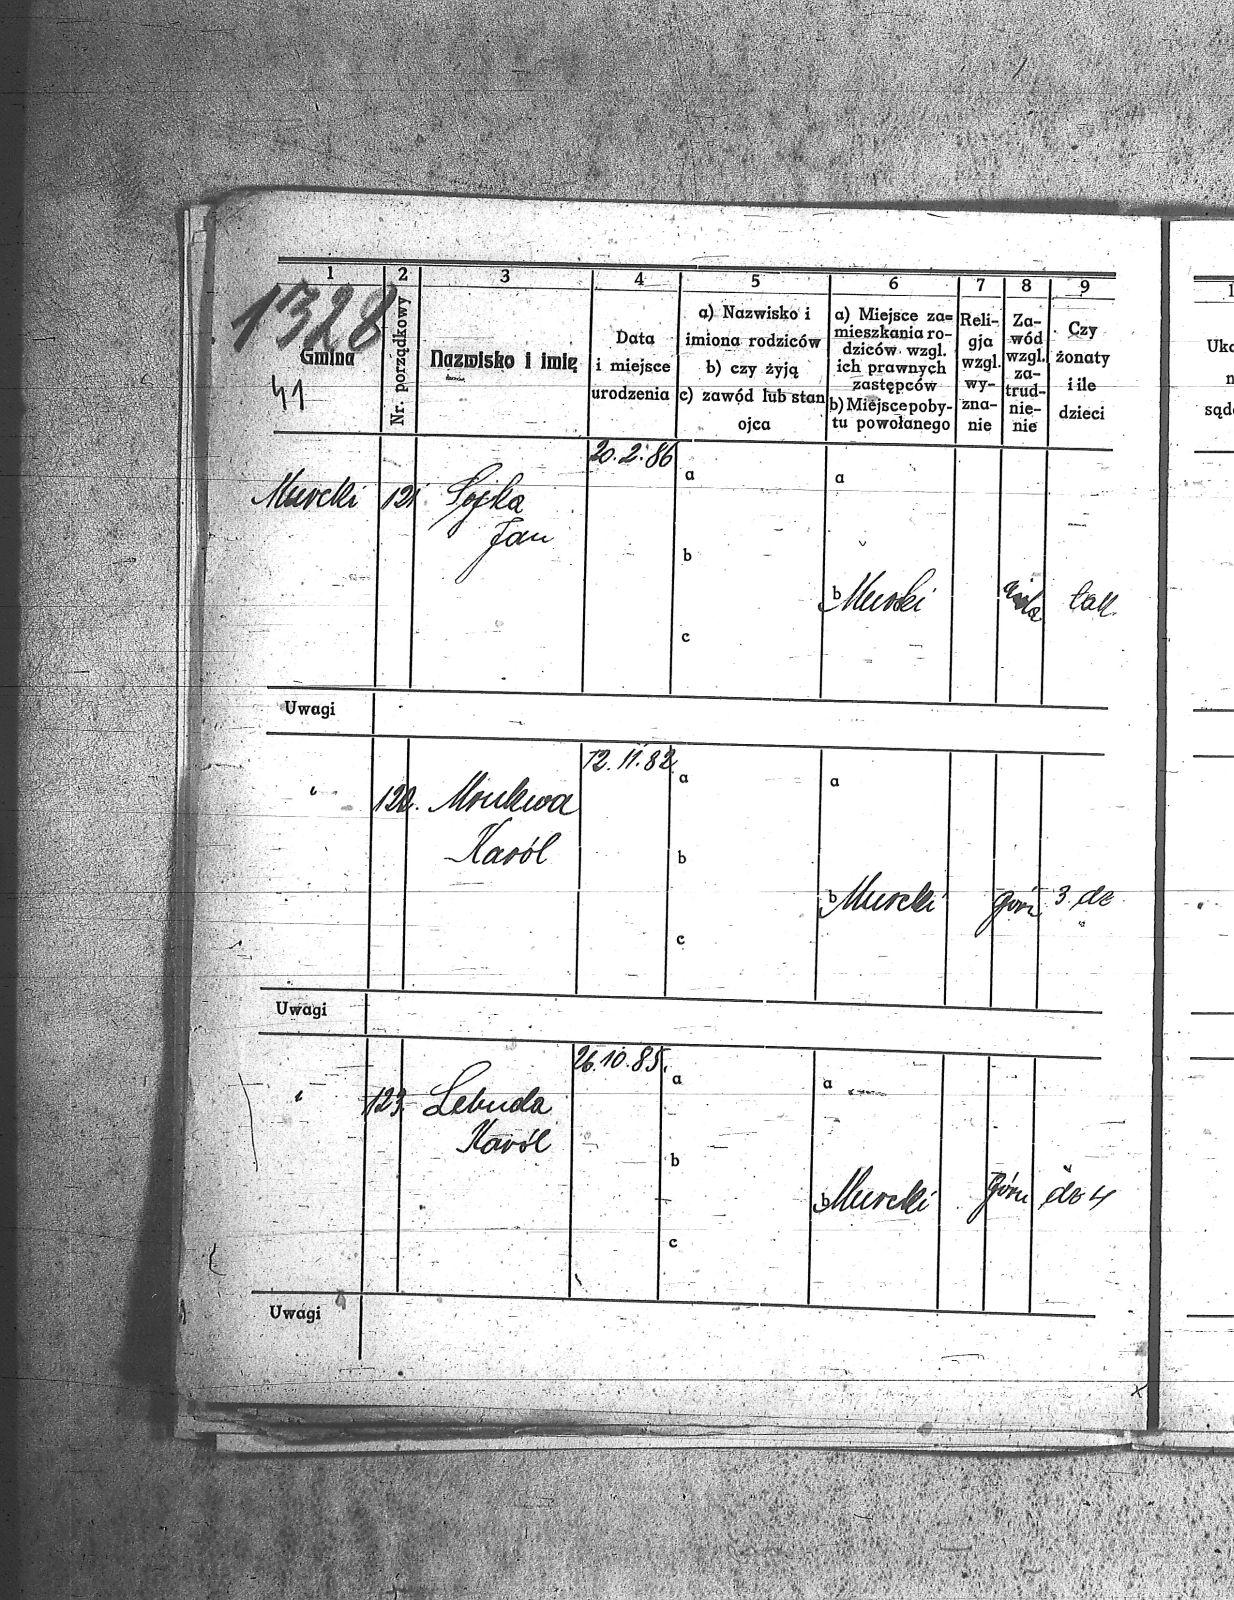 1 2 3 4 5 6 7 8 9
1328
Gmina
41
Nr. porządkowy
Nazwisko i imię
Data
i miejsce
urodzenia
a) Nazwisko i
imiona rodziców
b) czy żyją
c) zawód lub stan
ojca
a) Miejsce za=
mieszkania ro-
dziców wzgl.
ich prawnych
zastępców
b) Miejsce poby-
tu powołanego
Reli-
gja
wzgl.
wy-
zna-
nie
Za-
wód
wzgl.
za-
trud-
nie-
nie
Czy
żonaty
i ile
dzieci
20.2.86
Murcki 121 Sojka
Jan
a a
b
b Murcki tak
c
Uwagi
12.11.82
" 122. Mrukwa
Karól
a a
b
b Murcki górn 3 dz
c
Uwagi
26.10.85.
" 123. Lebuda
Karól
a a
b
b Murcki górn dz 4
c
Uwagi
1
Uka
n
sąd